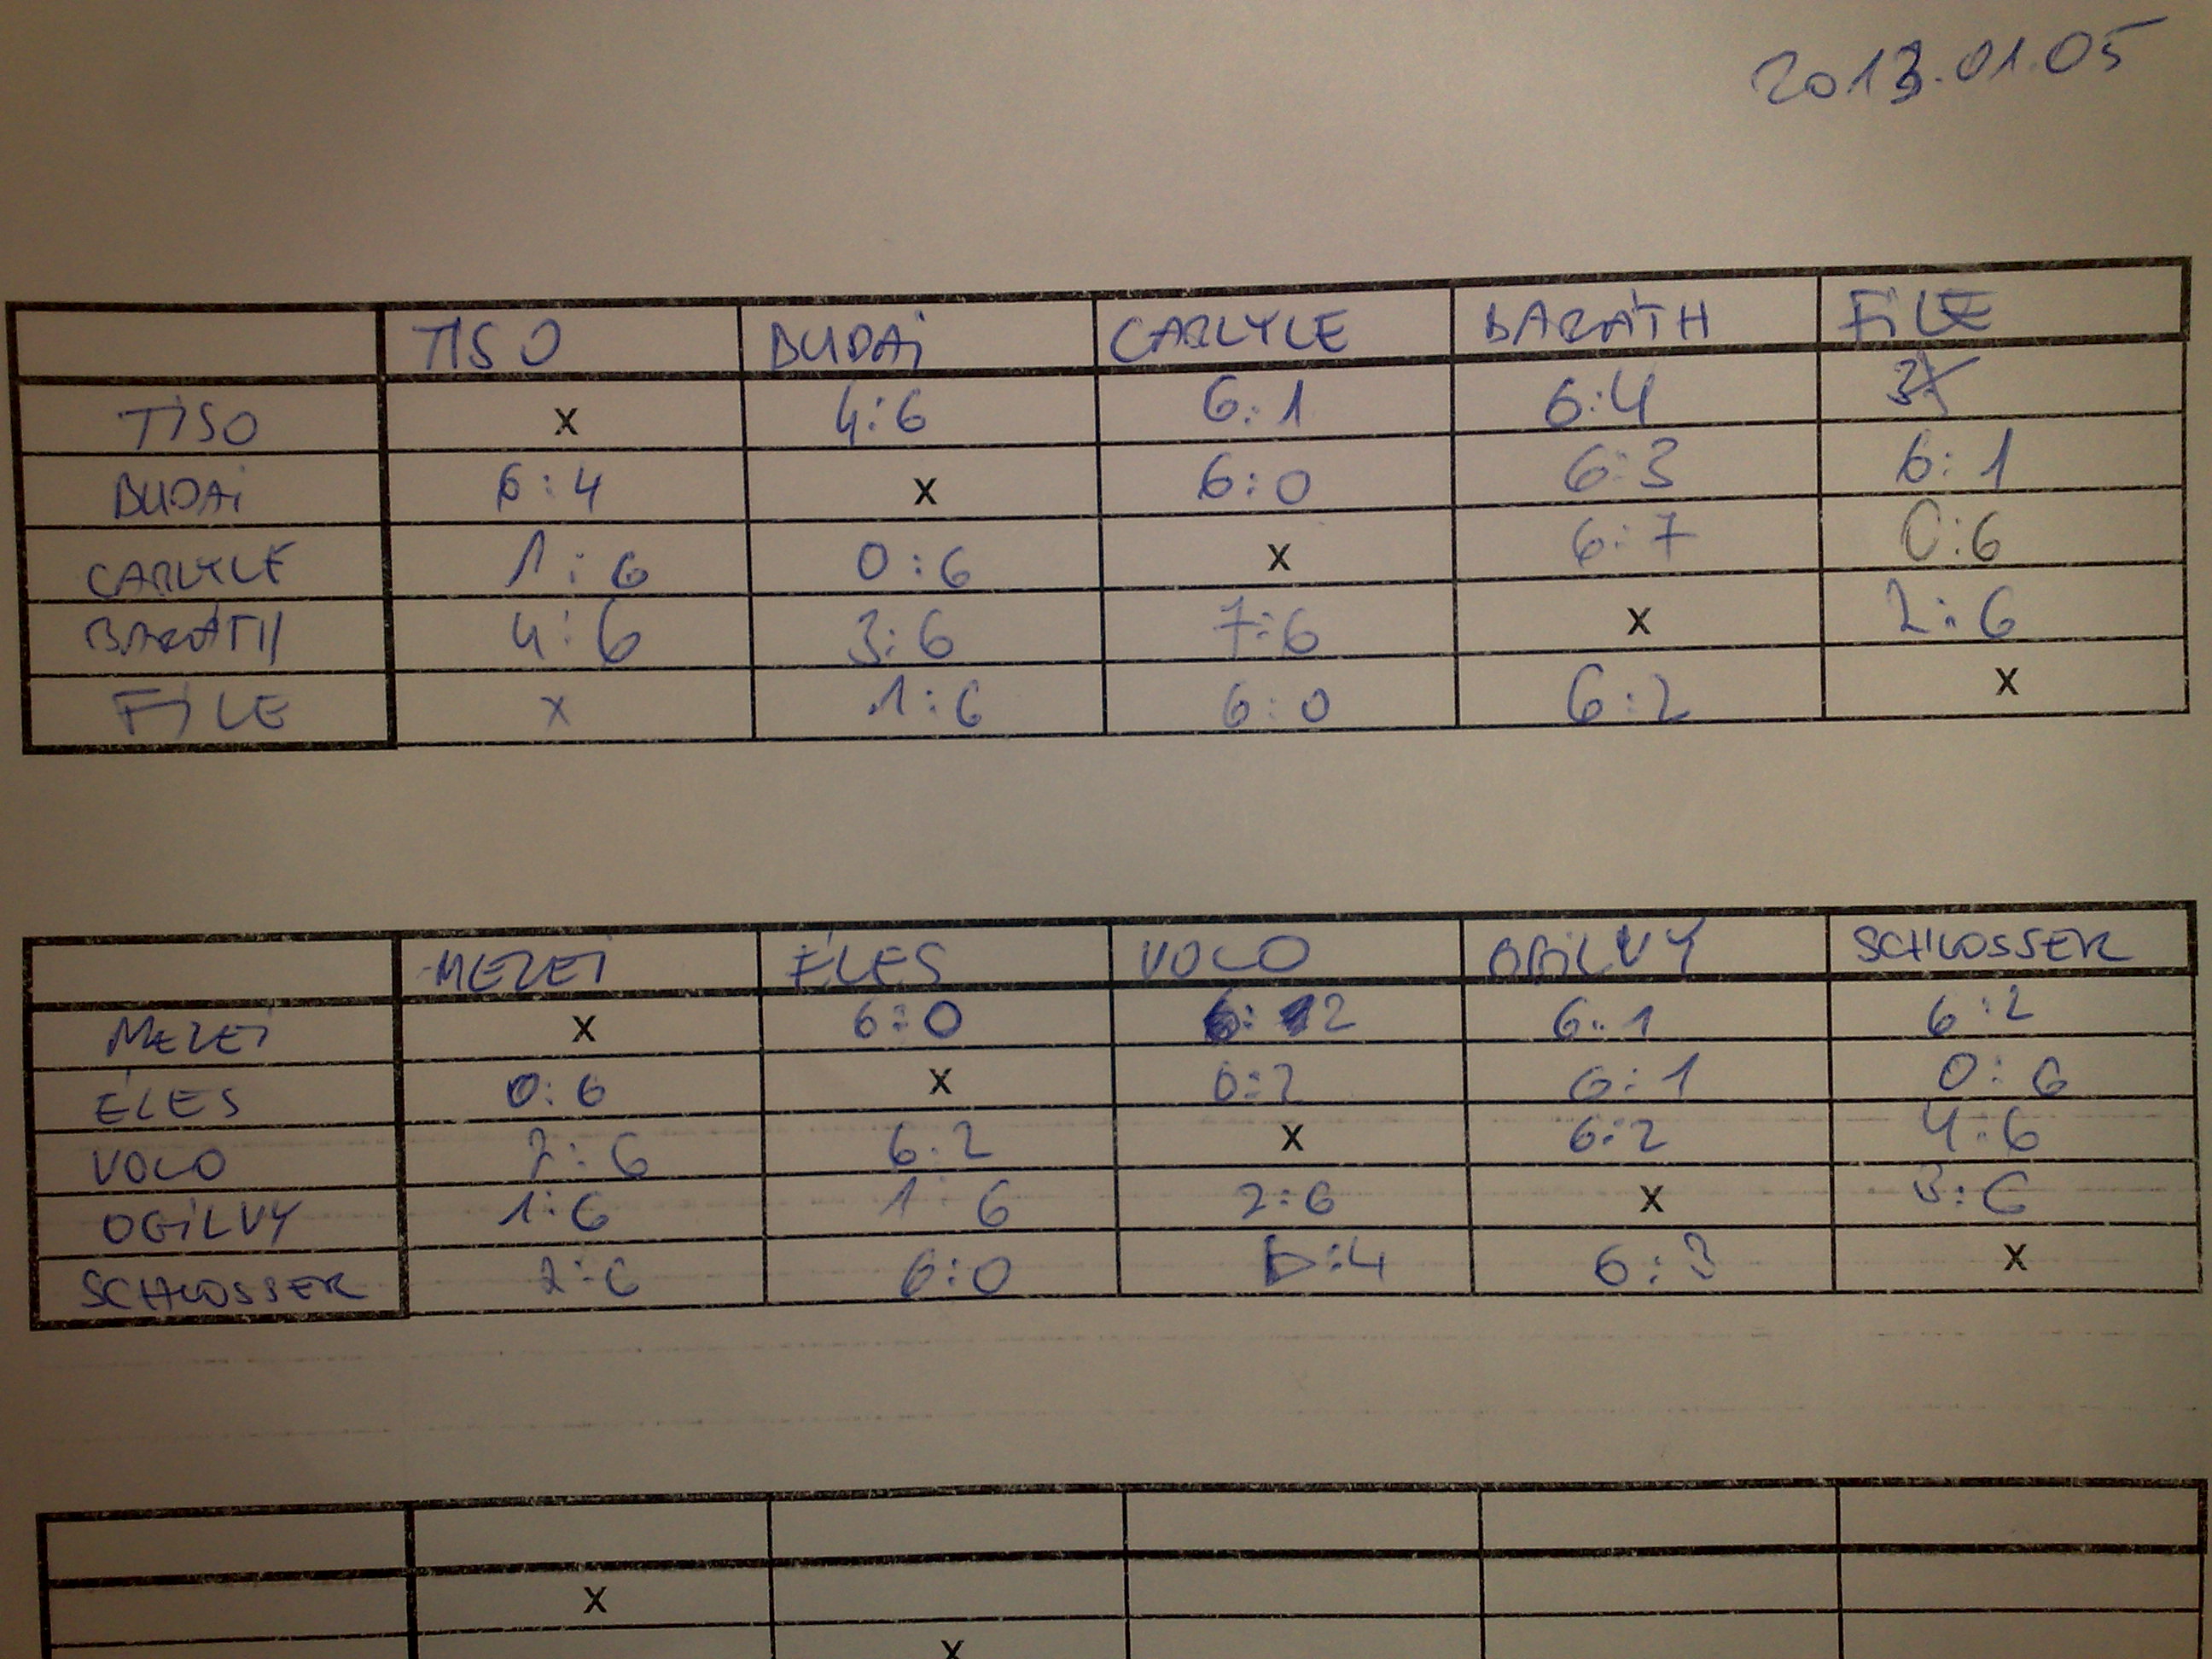 2013.01.05
TISO BUDAi CARLYLE BARÁTH FiLE
TISO x 4:6 6:1 6:4
BUDAi 6:4 x 6:0 6:3 6:1
CARLYLE 1:6 0:6 x 6:7 0:6
BARÁTH 4:6 3:6 7:6 x 2:6
FiLE x 1:6 6:0 6:2 x
MEZEi ÉLES VOLO OGiLVY SCHLOSSER
MEZEi x 6:0 6:2 6:1 6:2
ÉLES 0:6 x 0:2 6:1 0:6
VOLO 2:6 6:2 x 6:2 4:6
OGiLVY 1:6 1:6 2:6 x 3:6
SCHLOSSER 2:6 6:0 6:4 6:3 x
x
x